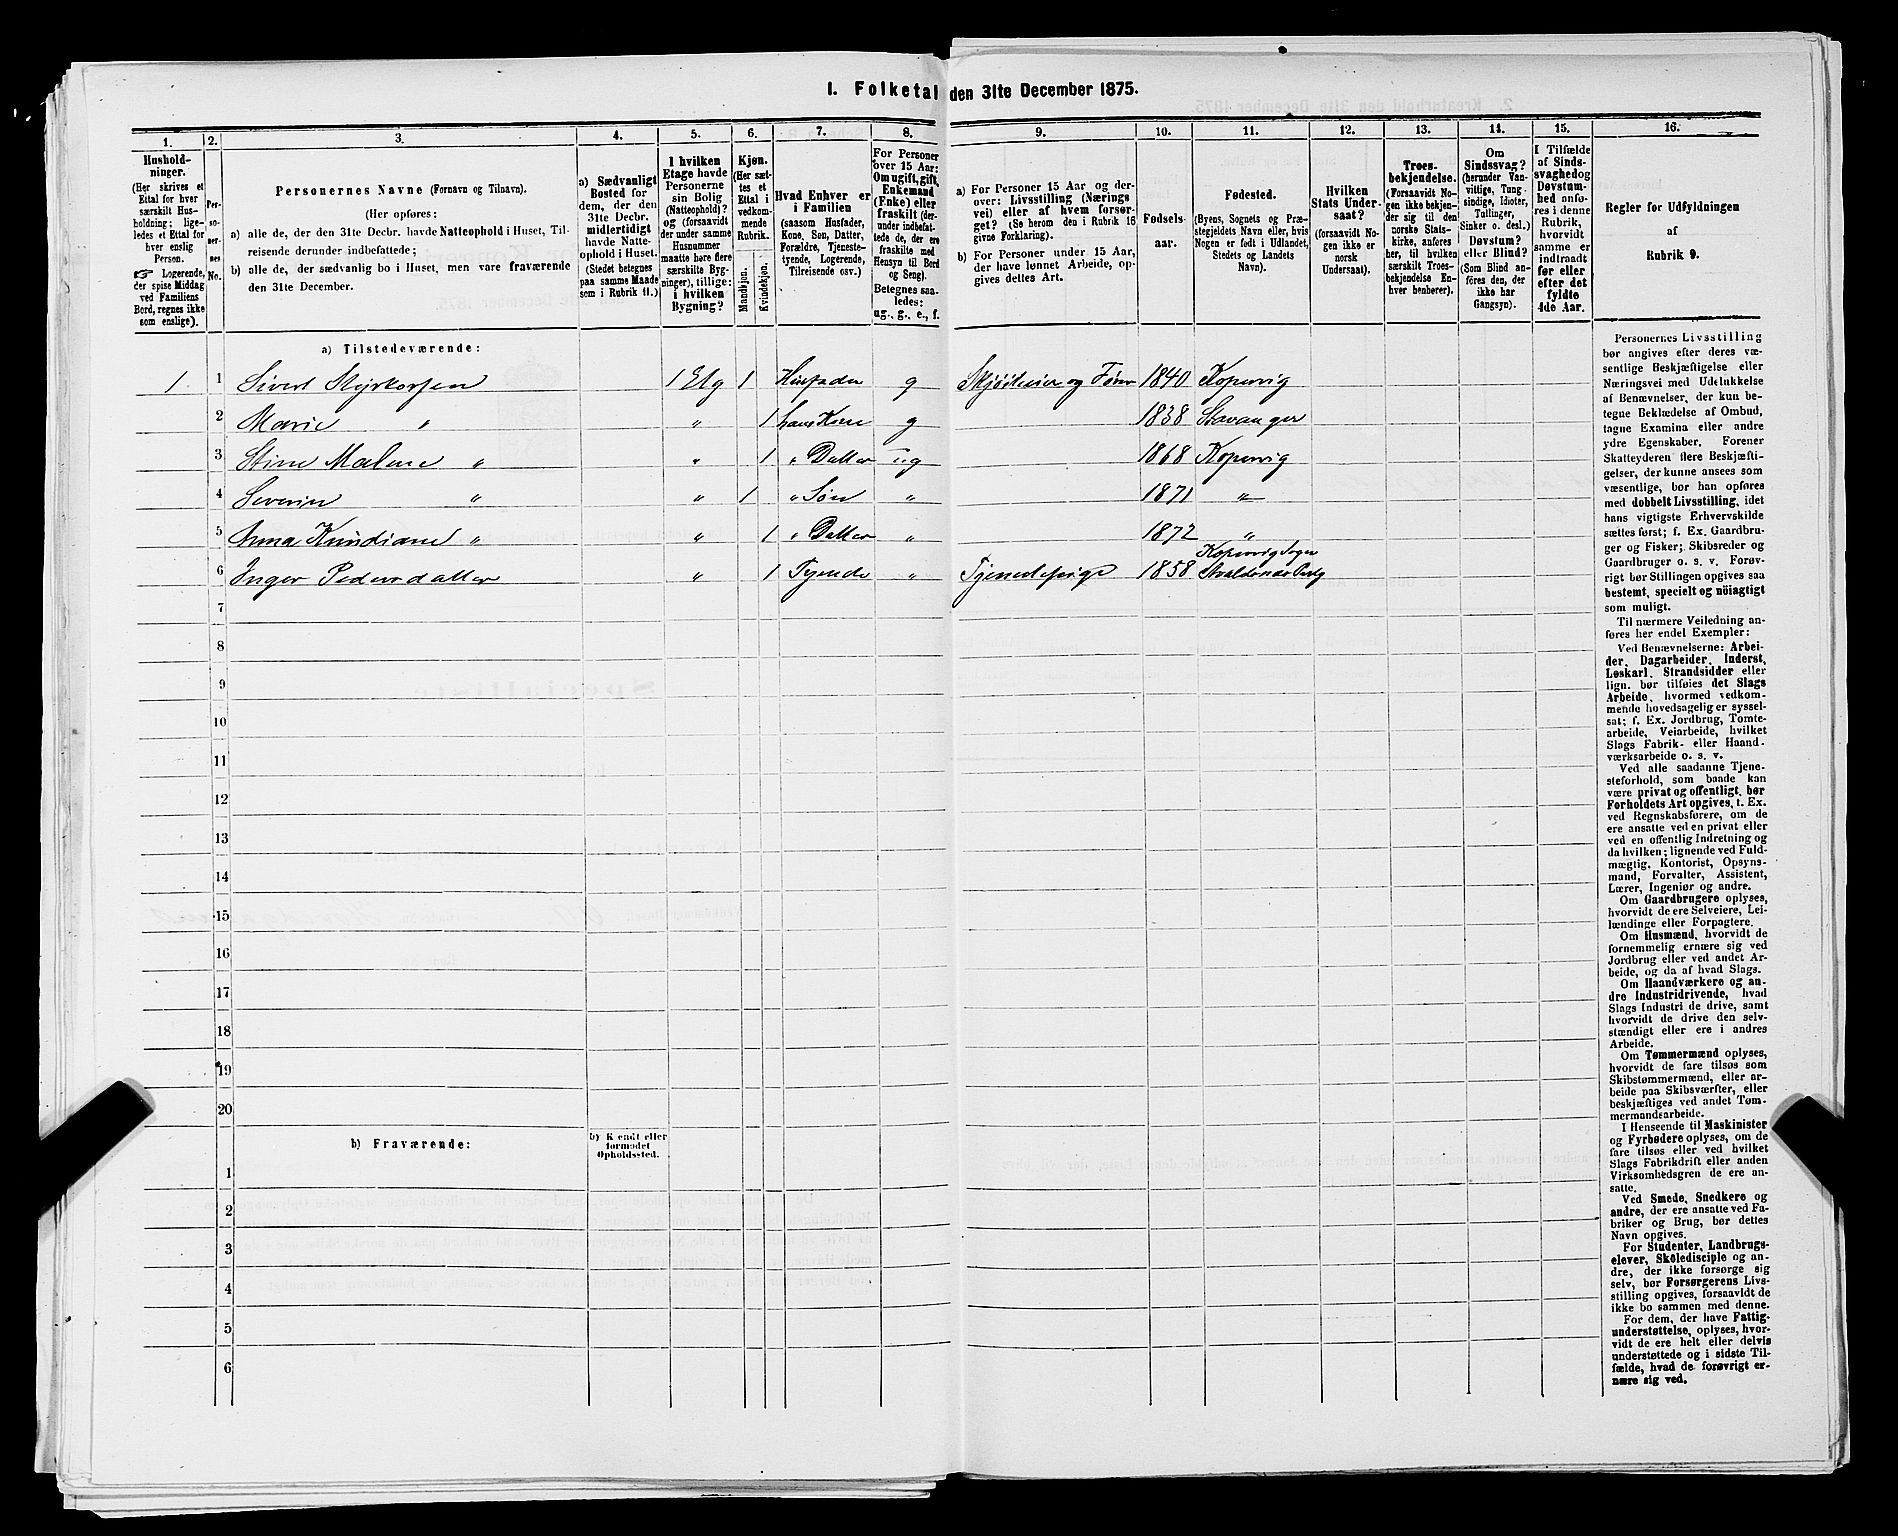 1. Folketal den 31te December 1875.
1. 2. 3. 4. 5. 6. 7. 8. 9. 10. 11. 12. 13. 14. 15. 16.
Hushold-
ninger.
(Her skrives et
Ettal for hver
særskilt Hus-
holdning; lige-
ledes et Ettal for
hver enslig
Person.
☞ Logerende,
der spise Middag
ved Familiens
Bord, regnes ikke
som enslige).
Per-
so-
ner-
nes
No.
Personernes Navne (Fornavn og Tilnavn).
(Her opføres:
a) alle de, der den 31te Decbr. havde Natteophold i Huset, Til-
reisende derunder indbefattede;
b) alle de, der sædvanlig bo i Huset, men vare fraværende
den 31te December.
a) Sædvanligt
Bosted for
dem, der den
31te Decbr.
midlertidigt
havde Natte-
ophold i Huset.
(Stedet betegnes
paa samme Maade
som i Rubrik 11.)
I hvilken
Etage havde
Personerne
sin Bolig
(Natteophold)?
og (forsaavidt
der under samme
Husnummer
maatte høre flere
særskilte Byg-
ninger), tillige:
i hvilken
Bygning?
Kjøn.
(Her sæt-
tes et
Ettal i
vedkom-
mende
Rubrik.
Mandkjøn.
Kvindekjøn.
Hvad Enhver er
i Familien
(saasom Husfader,
Kone, Søn, Datter,
Forældre, Tjeneste-
tyende, Logerende,
Tilreisende osv.)
For Personer
over 15 Aar:
Om ugift, gift,
Enkemand
(Enke) eller
fraskilt (der-
under indbefat-
tede de, der ere
fraskilte med
Hensyn til Bord
og Seng).
Betegnes saa-
ledes:
ug., g., e., f.
a) For Personer 15 Aar og der-
over: Livsstilling (Nærings
vei) eller af hvem forsør-
get? (Se herom den i Rubrik 16
givne Forklaring).
b) For Personer under 15 Aar,
der have lønnet Arbeide, op-
gives dettes Art.
Fødsels-
aar.
Fødested.
(Byens, Sognets og Præ-
stegjeldets Navn eller, hvis
Nogen er født i Udlandet,
Stedets og Landets
Navn).
Hvilken
Stats Under-
saat?
(forsaavidt No-
gen ikke er
norsk
Undersaat).
Troes-
bekjendelse.
(Forsaavidt No-
gen ikke bekjen-
der sig til den
norske Stats-
kirke, anføres
her, til hvilken
særskilt Troes-
bekjendelse En-
hver henhører).
Om
Sindssvag?
(herunder Van-
vittige, Tung-
sindige, Idioter,
Tullinger,
Sinker o. desl.)
Døvstum?
eller Blind?
(Som Blind an-
føres den, der
ikke har
Gangsyn).
I Tilfælde
af Sinds-
svaghed og
Døvstum-
hed anfø-
res i denne
Rubrik,
hvorvidt
samme er
indtraadt
før eller
efter det
fyldte
4de Aar.
Regler for Udfyldningen
af
Rubrik 9.
a) Tilstedeværende:
1. 1 Sivert Styrkorsen 1 Etg 1 Husfader g 1840 Kopervig
2 Marie " " 1 hans Kone g 1838 Stavanger
3 Stine Malene " " 1 " Datter ug 1868 Kopervig
4 Severin " " 1 " Søn " 1871 "
5 Anna " " 1 " Datter " 1872 "
6 Inger Pedersdatter " 1 Tyende " Tjenestepige 1858 Kopervig Sogn
7
8
9
10
11
12
13
14
15
16
17
18
19
20
b) Fraværende:
b) Kjendt eller
formodet
Opholdssted.
1
2
3
4
5
6
Personernes Livsstilling
bør angives efter deres væ-
sentlige Beskjæftigelse eller
Næringsvei med Udelukkelse
af Benævnelser, der kun be-
tegne Beklædelse af Ombud,
tagne Examina eller andre
ydre Egenskaber. Forener
Skatteyderen flere Beskjæfti-
gelser, der kunne ansees som
væsentlige, bør han opføres
med dobbelt Livsstilling, idet
hans vigtigste Erhvervskilde
sættes først; f. Ex. Gaardbru-
ger og Fisker; Skibsreder og
Gaardbruger o. s. v. Forøv-
rigt bør Stillingen opgives saa
bestemt, specielt og nøiagtigt
som muligt.
Til nærmere Veiledning an-
føres her endel Exempler:
Ved Benævnelserne: Arbei-
der, Dagarbeider, Inderst,
Løskarl, Strandsidder eller
lign. bør tilføies det Slags
Arbeide, hvormed vedkom-
mende hovedsagelig er syssel-
sat; f. Ex. Jordbrug, Tomte-
arbeide, Veiarbeide, hvilket
Slags Fabrik- eller Haand-
værksarbeide o. s. v.
Ved alle saadanne Tjene-
steforhold, som baade kan
være privat og offentligt, bør
Forholdets Art opgives, t. Ex.
ved Regnskabsførere, om de
ere ansatte ved en privat eller
ved en offentlig Indretning og
da hvilken; lignende ved Fuld-
mægtig, Kontorist, Opsyns-
mand, Forvalter, Assistent,
Lærer, Ingeniør og andre.
Om Gaardbrugere oplyses,
hvorvidt de ere Selveiere, Lei-
lændinge eller Forpagtere.
Om Husmænd, hvorvidt de
fornemmelig ernære sig ved
Jordbrug eller ved andet Ar-
beide, og da af hvad Slags.
Om Haandværkere og an-
dre Industridrivende, hvad
Slags Industri de drive, samt
hvorvidt de drive den selv-
stændigt eller ere i andres
Arbeide.
Om Tømmermænd oplyses,
hvorvidt de fare tilsøs som
Skibstømmermænd, eller ar-
beide paa Skibsværfter, eller
beskjæftiges ved andet Tøm-
mermandsarbeide.
I Henseende til Maskinister
og Fyrbødere oplyses, om de
fare tilsøs eller ved hvilket
Slags Fabrikdrift eller anden
Virksomhedsgren de ere an-
satte.
Ved Smede, Snedkere og
andre, der ere ansatte ved Fa-
briker og Brug, bør dettes
Navn opgives.
For Studenter, Landbrugs-
elever, Skoledisciple og an-
dre, der ikke forsørge sig
selv, bør Forsørgerens Livs-
stilling opgives, forsaavidt de
ikke bo sammen med denne.
For dem, der have Fattig-
understøttelse, oplyses, hvor-
vidt de ere helt eller delvis
understøttede og i sidste Til-
fælde, hvad de forøvrigt er-
nære sig ved.